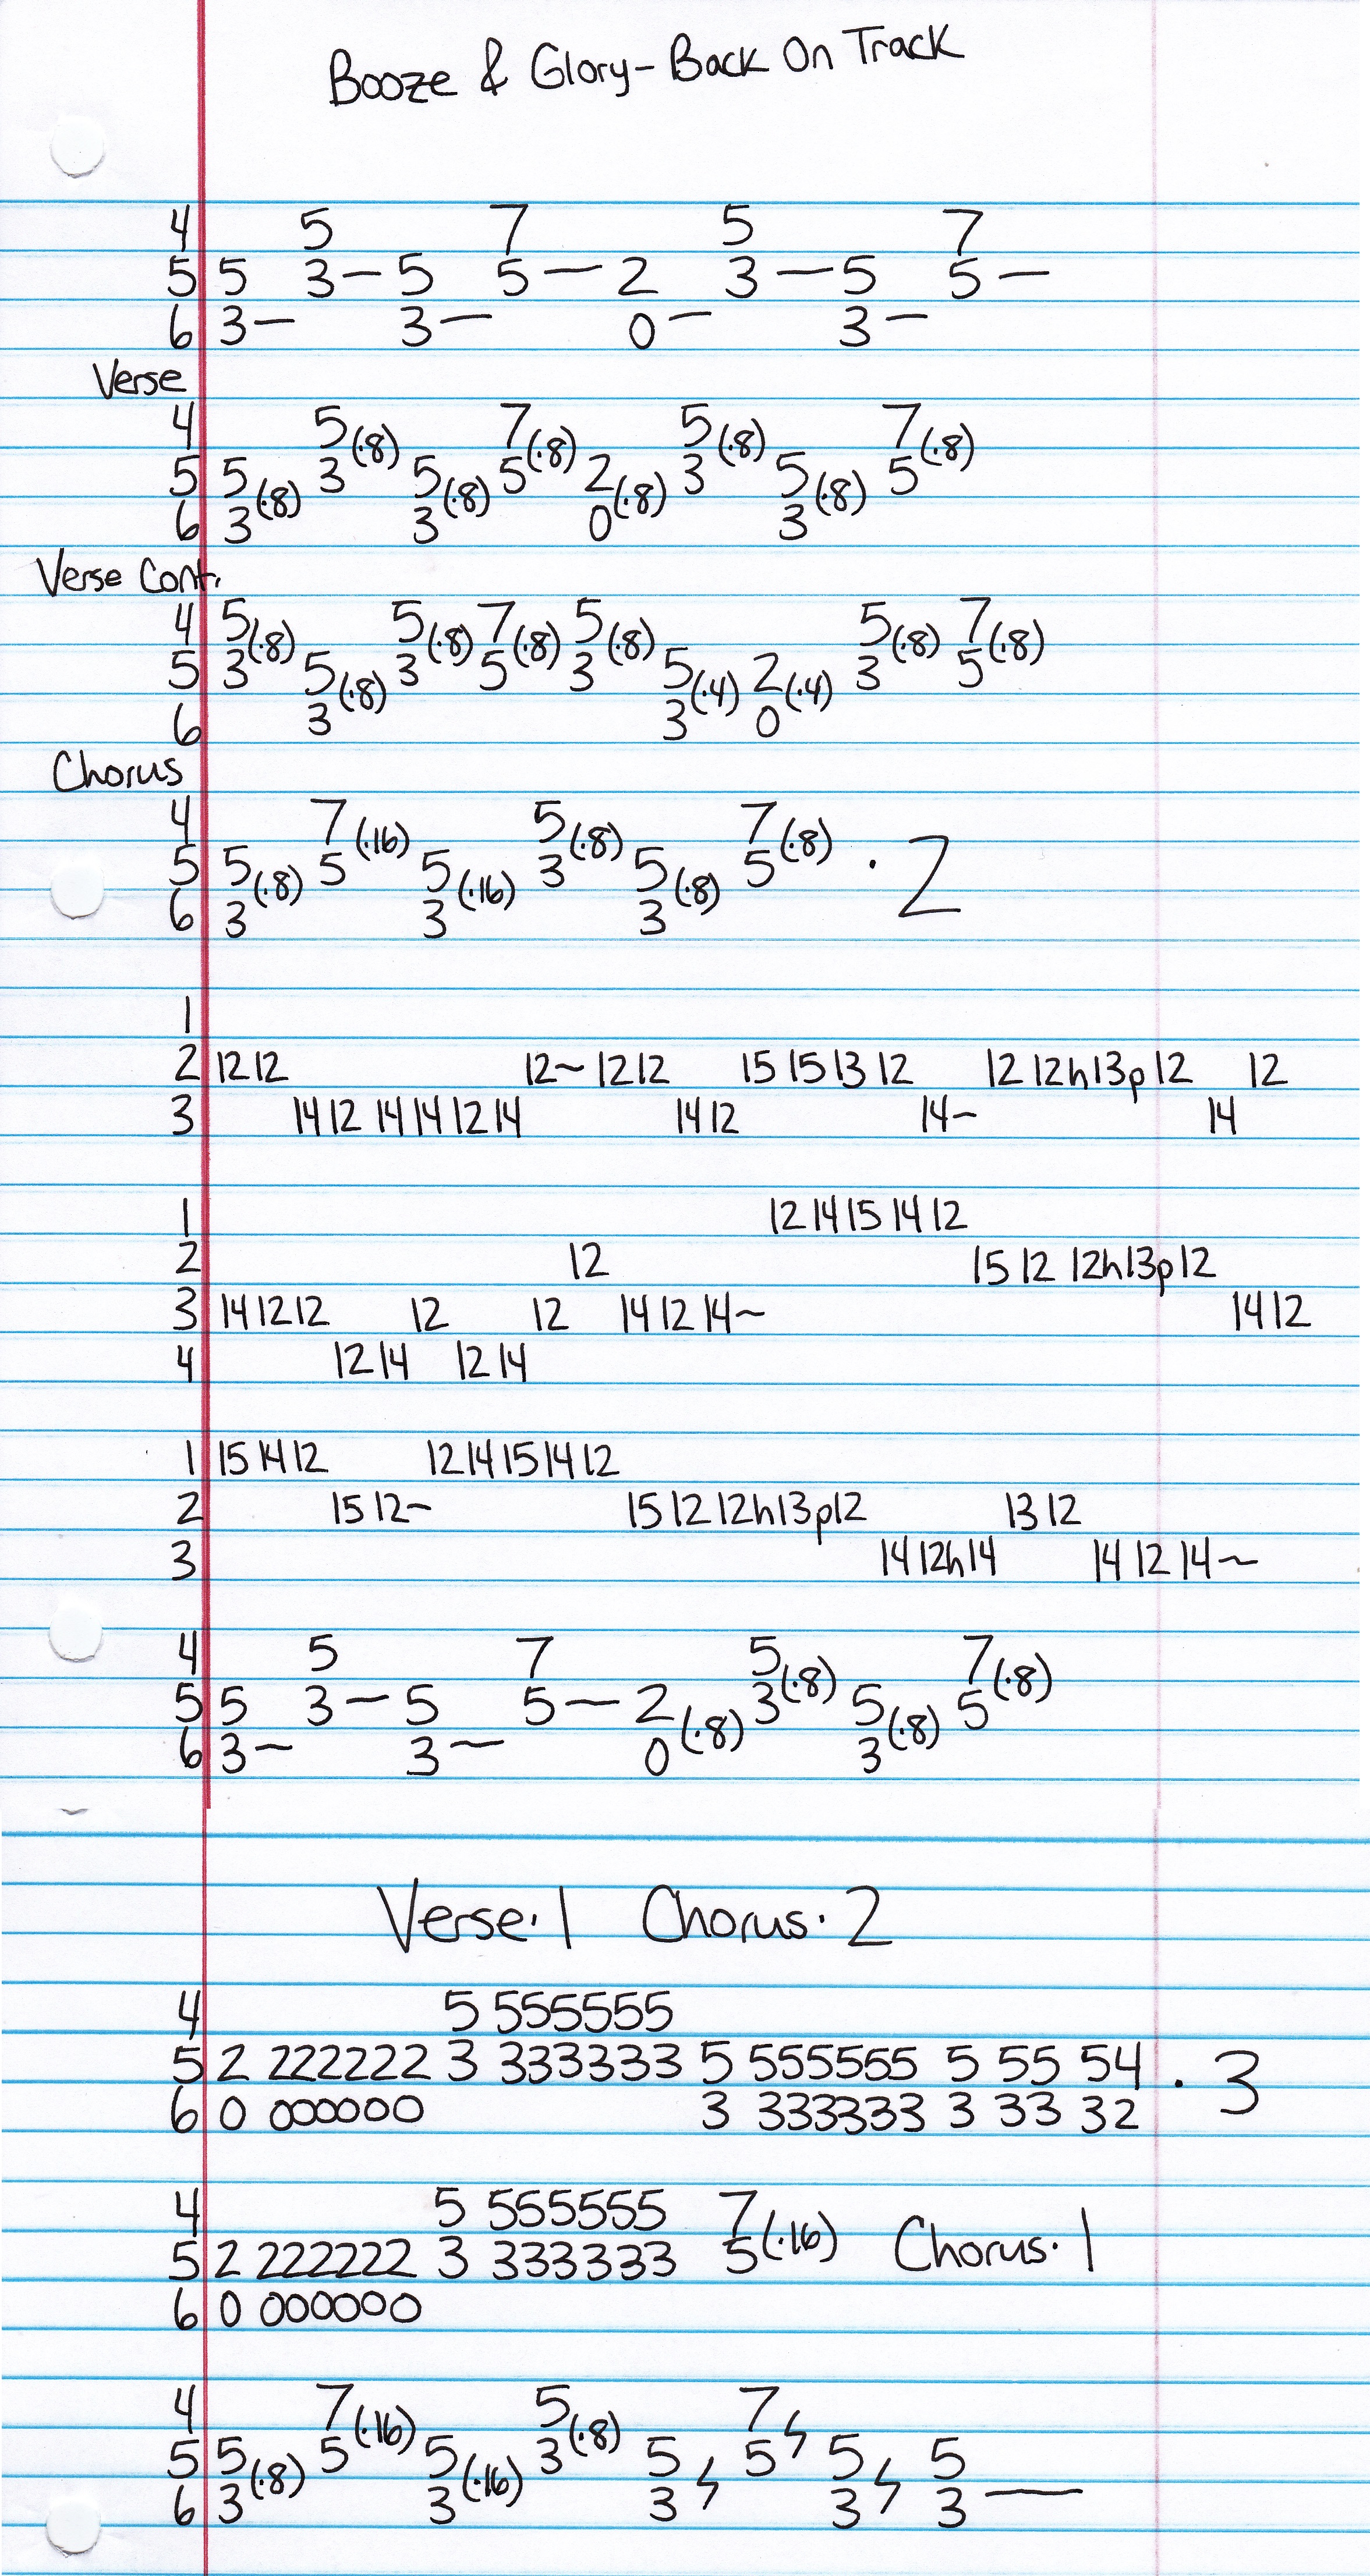 Booze & Glory - Back On Track
4 5 7 5 7
5 5 3 — 5 5 — 2 3 — 5 5 —
6 3 — 3 — 0 — 3 —
Verse
4 5(·8) 7(·8) 5(·8) 7(·8)
5 5(·8) 3 5(·8) 5 2(·8) 3 5(·8) 5
6 3 3 0 3
Verse Cont.
4 5(·8) 5(·8) 7(·8) 5(·8) 5(·8) 7(·8)
5 3 5(·8) 3 5 3 5(·4) 2(·4) 3 5
6 3 3 0
Chorus
4 7(·16) 5(·8) 7(·8)
5 5(·8) 5 5(·16) 3 5(·8) 5 · 2
6 3 3 3
1
2 12 12 12~ 12 12 15 15 13 12 12 12h13p12 12
3 14 12 14 14 12 14 14 12 14~ 14
1 12 14 15 14 12
2 12 15 12 12h13p12
3 14 12 12 12 12 14 12 14~ 14 12
4 12 14 12 14
1 15 14 12 12 14 15 14 12
2 15 12~ 15 12 12h13p12 13 12
3 14 12h14 14 12 14~
4 5 7 5(·8) 7(·8)
5 5 3 — 5 5 — 2(·8) 3 5(·8) 5
6 3 — 3 — 0 3
Verse·1 Chorus·2
4 5 555555
5 2 222222 3 333333 5 555555 5 55 54 · 3
6 0 000000 3 333333 3 33 32
4 5 555555 7(·16)
5 2 222222 3 333333 5 Chorus·1
6 0 000000
4 7(·16) 5(·8) 7
5 5(·8) 5 5(·16) 3 5 5 5 5
6 3 3 3 3 3 —